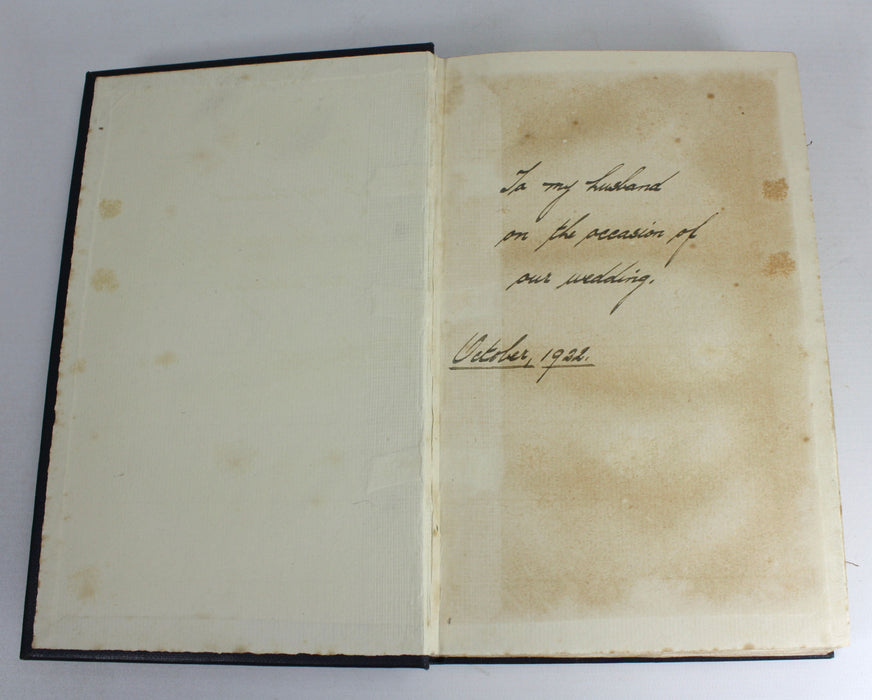 To my husband
on the occasion of
our wedding.
October, 1922.